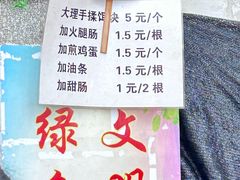 大理手揉饵块 5 元/个
加火腿肠 1.5 元/根
加煎鸡蛋 1.5 元/个
加油条 1.5 元/根
加甜肠 1 元/2 根
绿 文